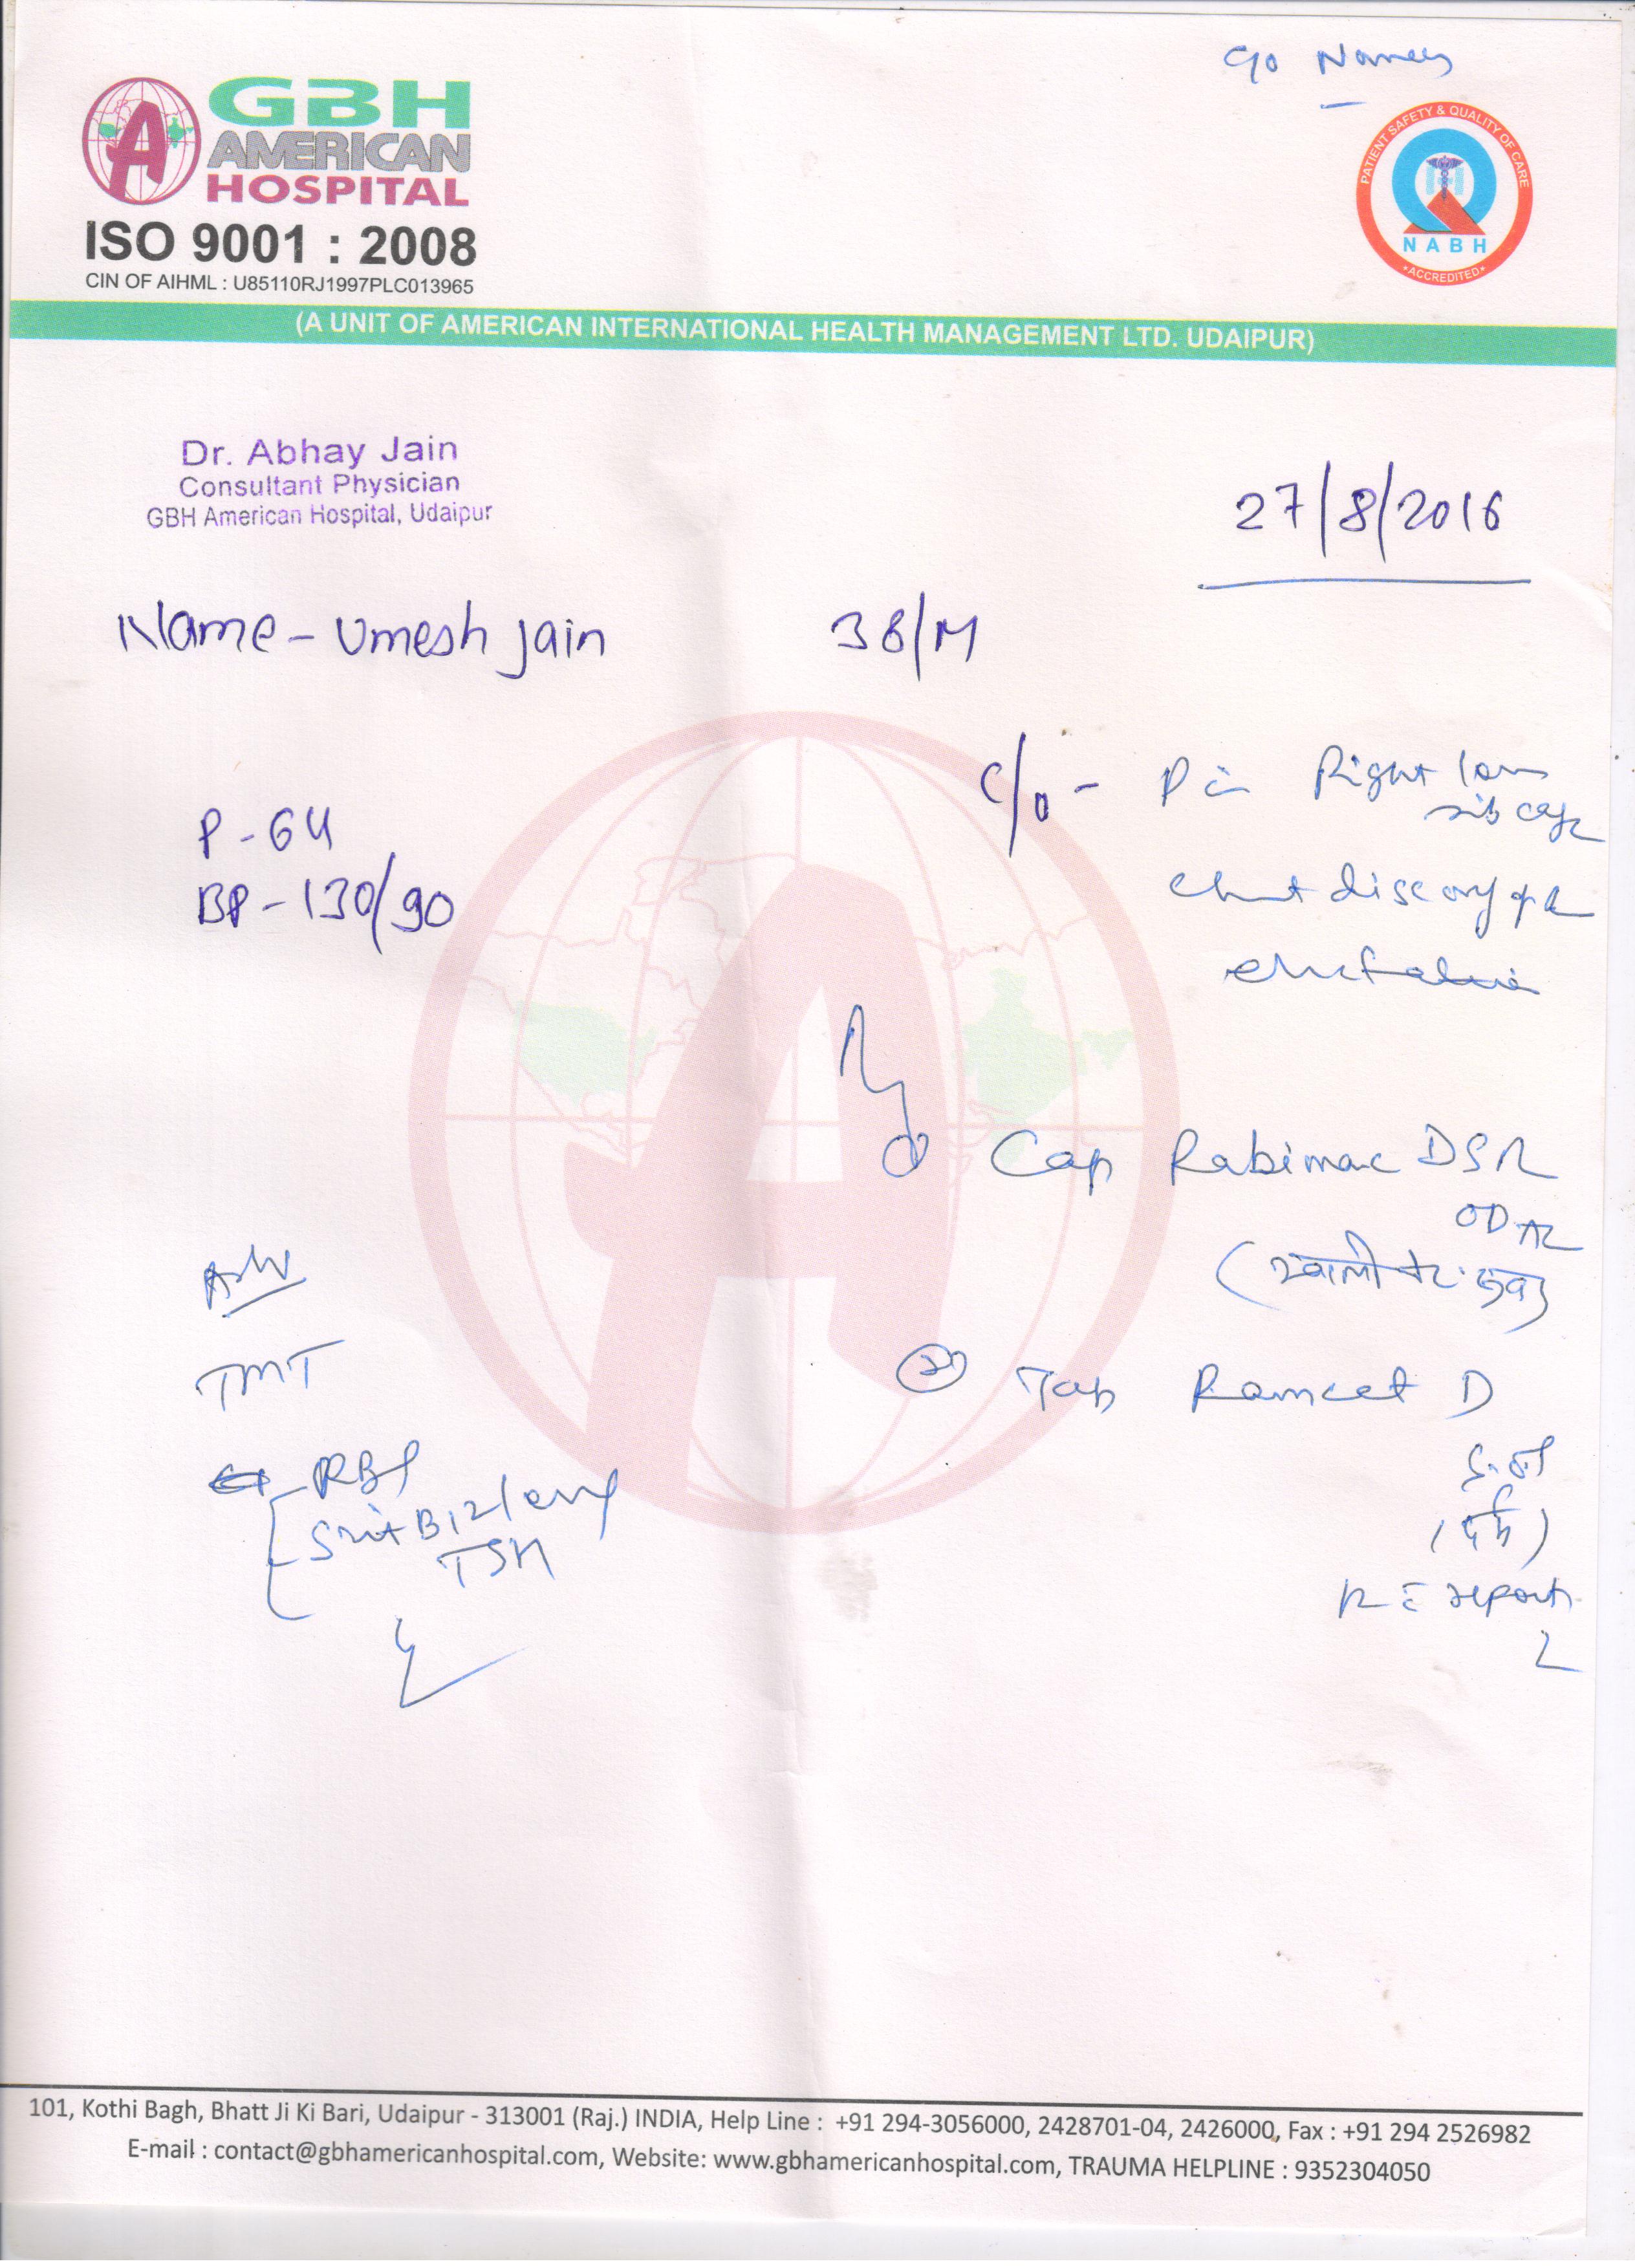 GBH
AMERICAN
HOSPITAL
ISO 9001 : 2008
CIN OF AIHML : U85110RJ1997PLC013965
PATIENT SAFETY & QUALITY OF CARE
NABH
ACCREDITED
(A UNIT OF AMERICAN INTERNATIONAL HEALTH MANAGEMENT LTD. UDAIPUR)
Dr. Abhay Jain
Consultant Physician
GBH American Hospital, Udaipur
27/8/2016
Name - Umesh Jain 38/M
C/o - P in Right
P - 64
BP - 130/90
Cap Rabimac DSR
OD
(खाली पेट
Adv
TMT
② Tab Ramcet D
RBS
B12
TSH
(दर्द)
R c reports
101, Kothi Bagh, Bhatt Ji Ki Bari, Udaipur - 313001 (Raj.) INDIA, Help Line : +91 294-3056000, 2428701-04, 2426000, Fax : +91 294 2526982
E-mail : contact@gbhamericanhospital.com, Website: www.gbhamericanhospital.com, TRAUMA HELPLINE : 9352304050